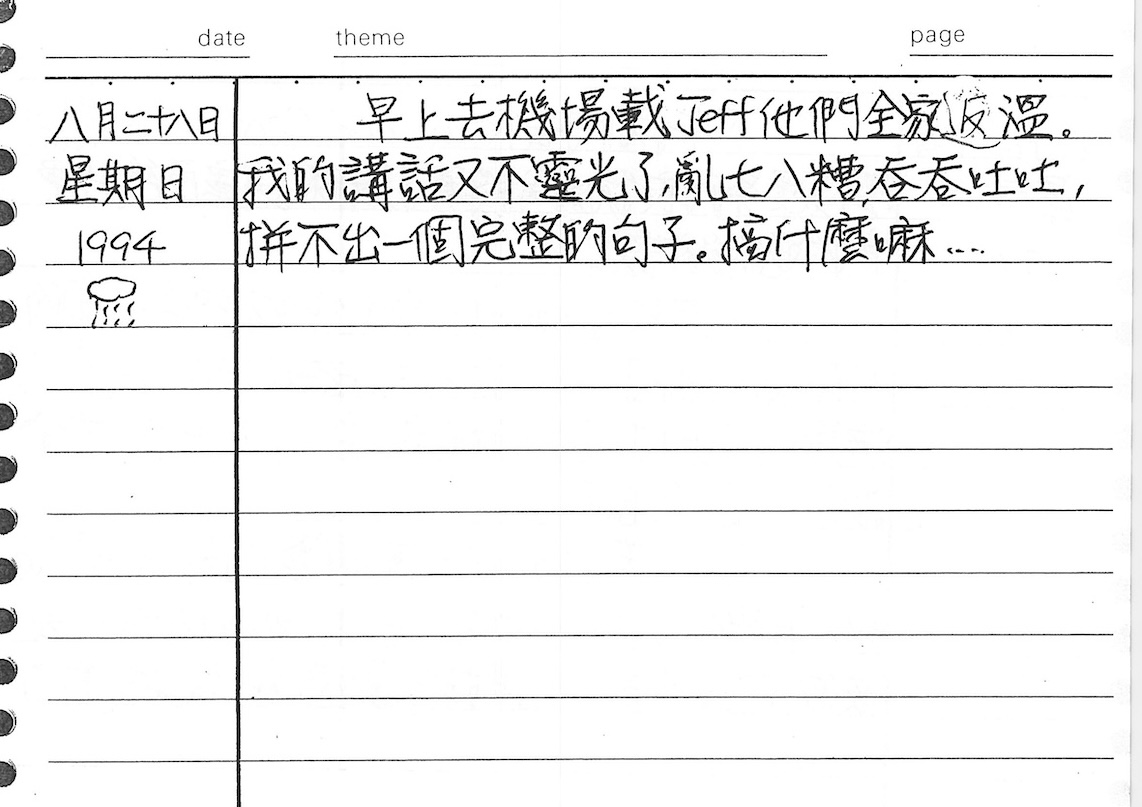 date theme page
八月二十八日 早上去機場載Jeff他們全家返溫。
星期日 我的講話又不靈光了,亂七八糟,吞吞吐吐,
1994 拼不出一個完整的句子。搞什麼嘛……